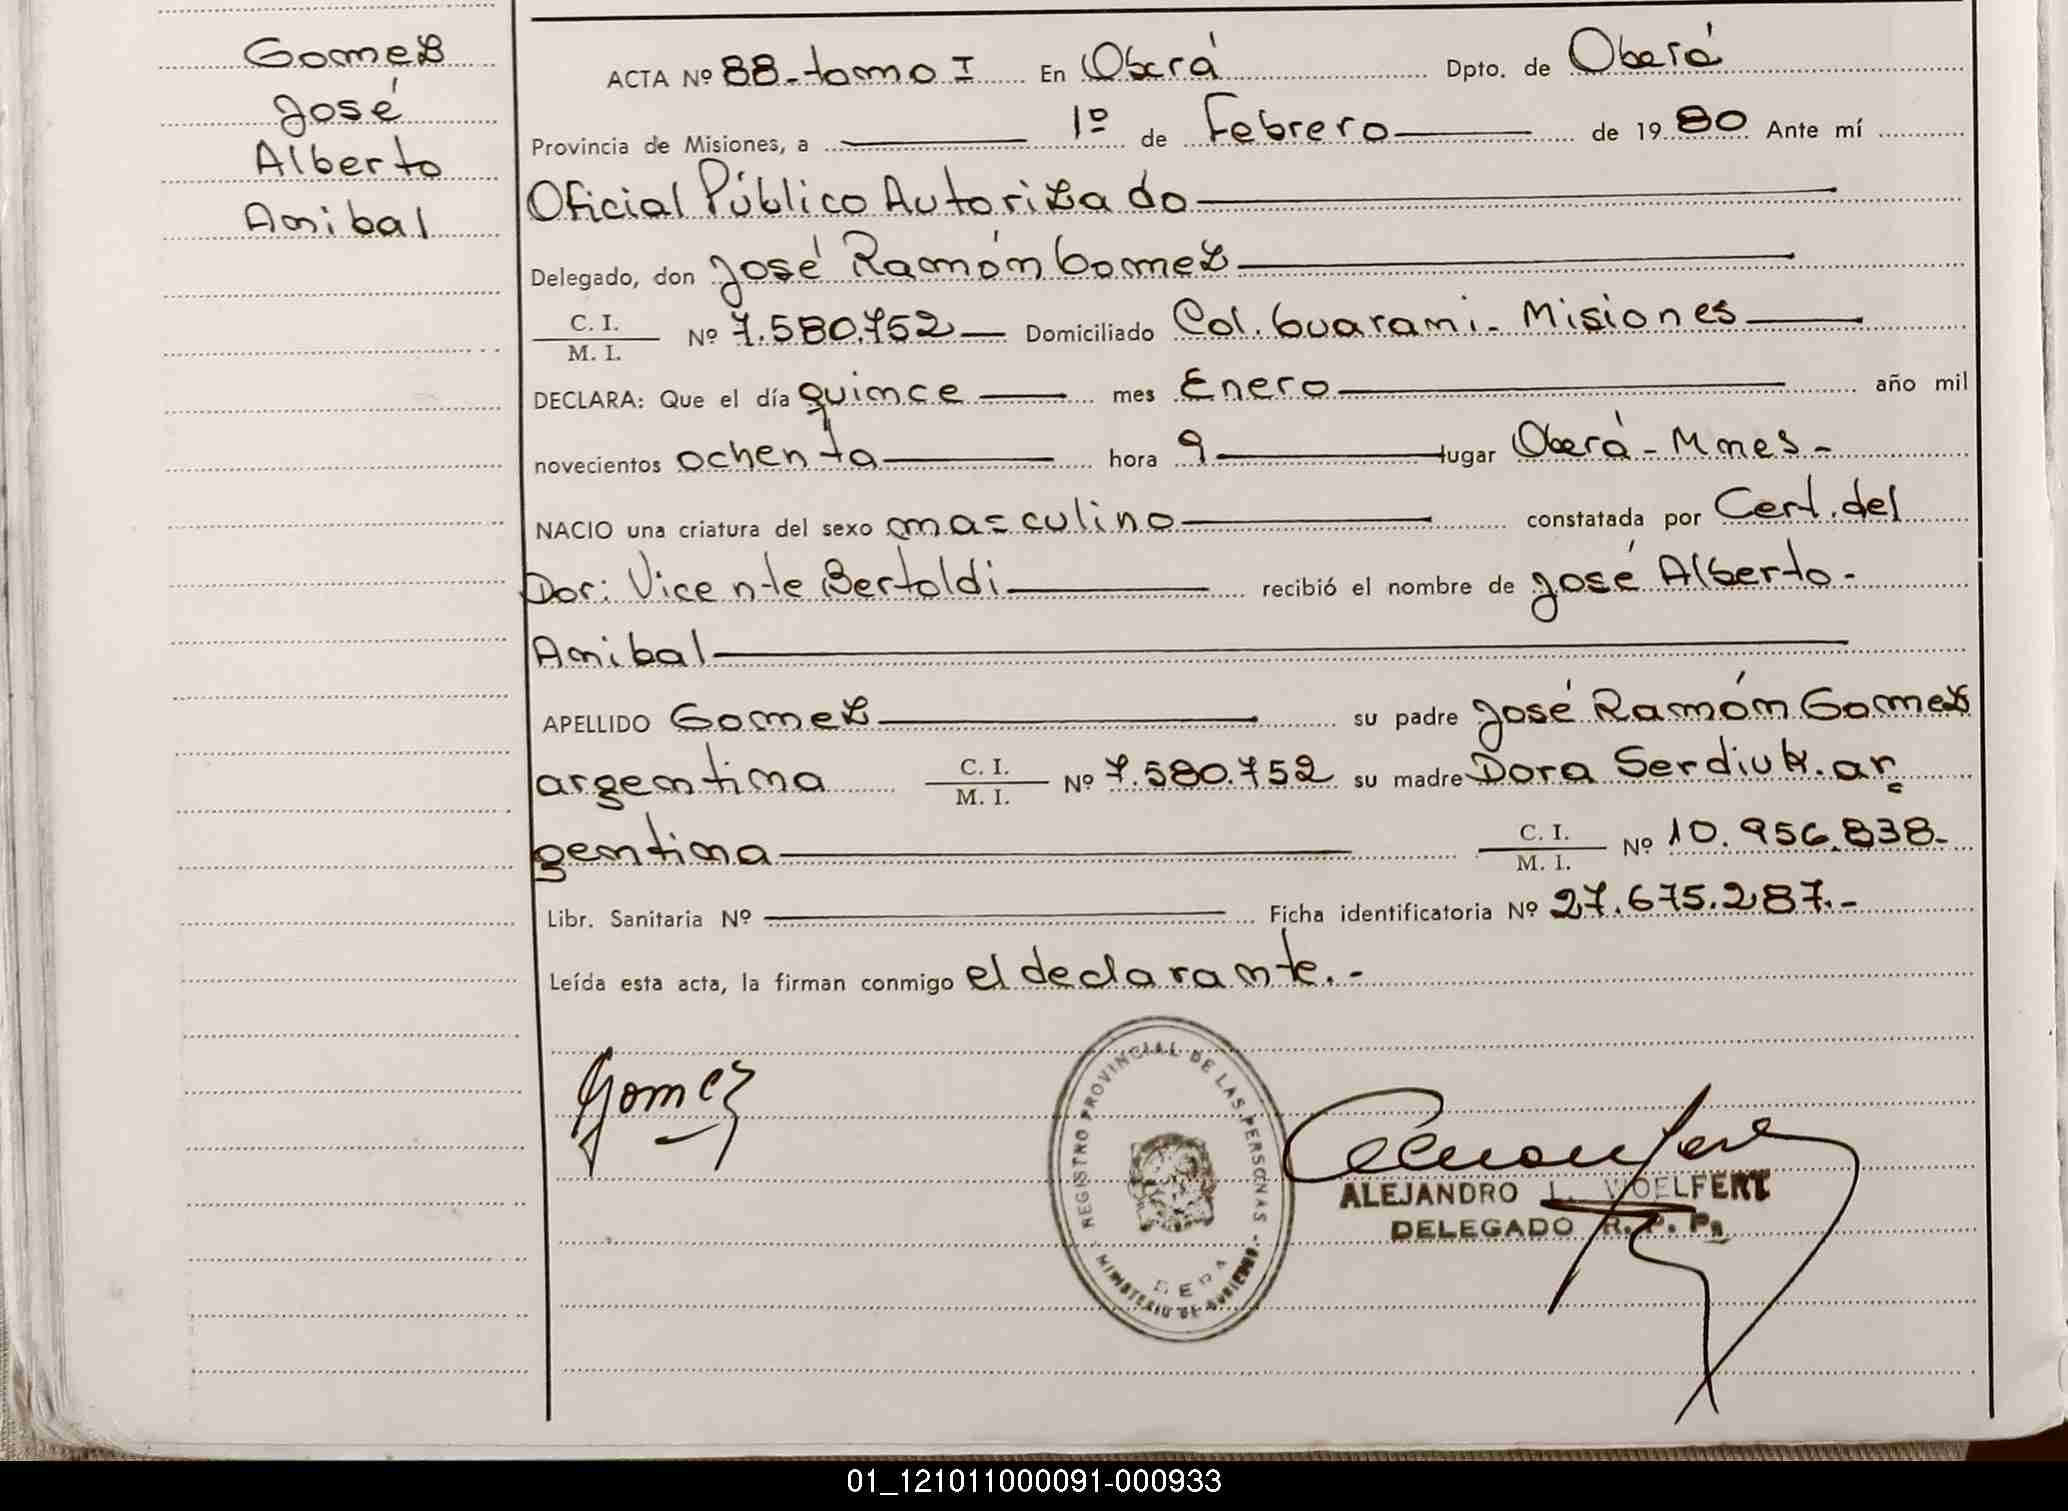 Gomez
José
Alberto
Anibal
ACTA Nº 88-tomo I En Oberá Dpto. de Oberá
Provincia de Misiones, a 1º de Febrero de 1980 Ante mí
Oficial Público Autorizado
Delegado, don José Ramón Gomez
C. I.
M. I. Nº 7.580.752 Domiciliado Col. Guarami - Misiones
DECLARA: Que el día quince mes Enero año mil
novecientos ochenta hora 9 lugar Oberá - Mnes -
NACIO una criatura del sexo masculino constatada por Cert. del
Dor: Vicente Bertoldi recibió el nombre de José Alberto -
Anibal
APELLIDO Gomez su padre José Ramón Gomez
argentina C. I. M. I. Nº 7.580.752 su madre Dora Serdiuk. ar
gentina C. I. M. I. Nº 10.956.838-
Libr. Sanitaria Nº Ficha identificatoria Nº 27.675.287.-
Leída esta acta, la firman conmigo el declarante.-
Gomez
REGISTRO PROVINCIAL DE LAS PERSONAS
MINISTERIO DE GOBIERNO
ALEJANDRO L. WOELFERT
DELEGADO R. P. Ps
01_121011000091-000933